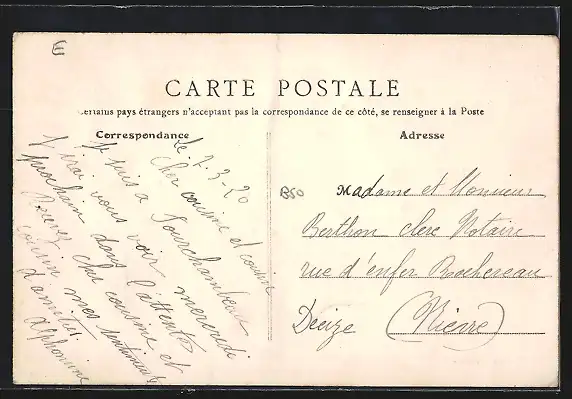 E
CARTE POSTALE
Certains pays étrangers n'acceptant pas la correspondance de ce côté, se renseigner à la Poste
Correspondance
Adresse
Le 7-3-20
Cher cousine et cousin
Je suis a
J'irai vous voir mercredi
prochain dans l'attente
Recevez cher cousine et
cousin mes sentiments
d'amitiés
Alphonsine
B50
Madame et Monsieur
Berthon clerc Notaire
rue d'enfer Rochereau
Decize (Nièvre)